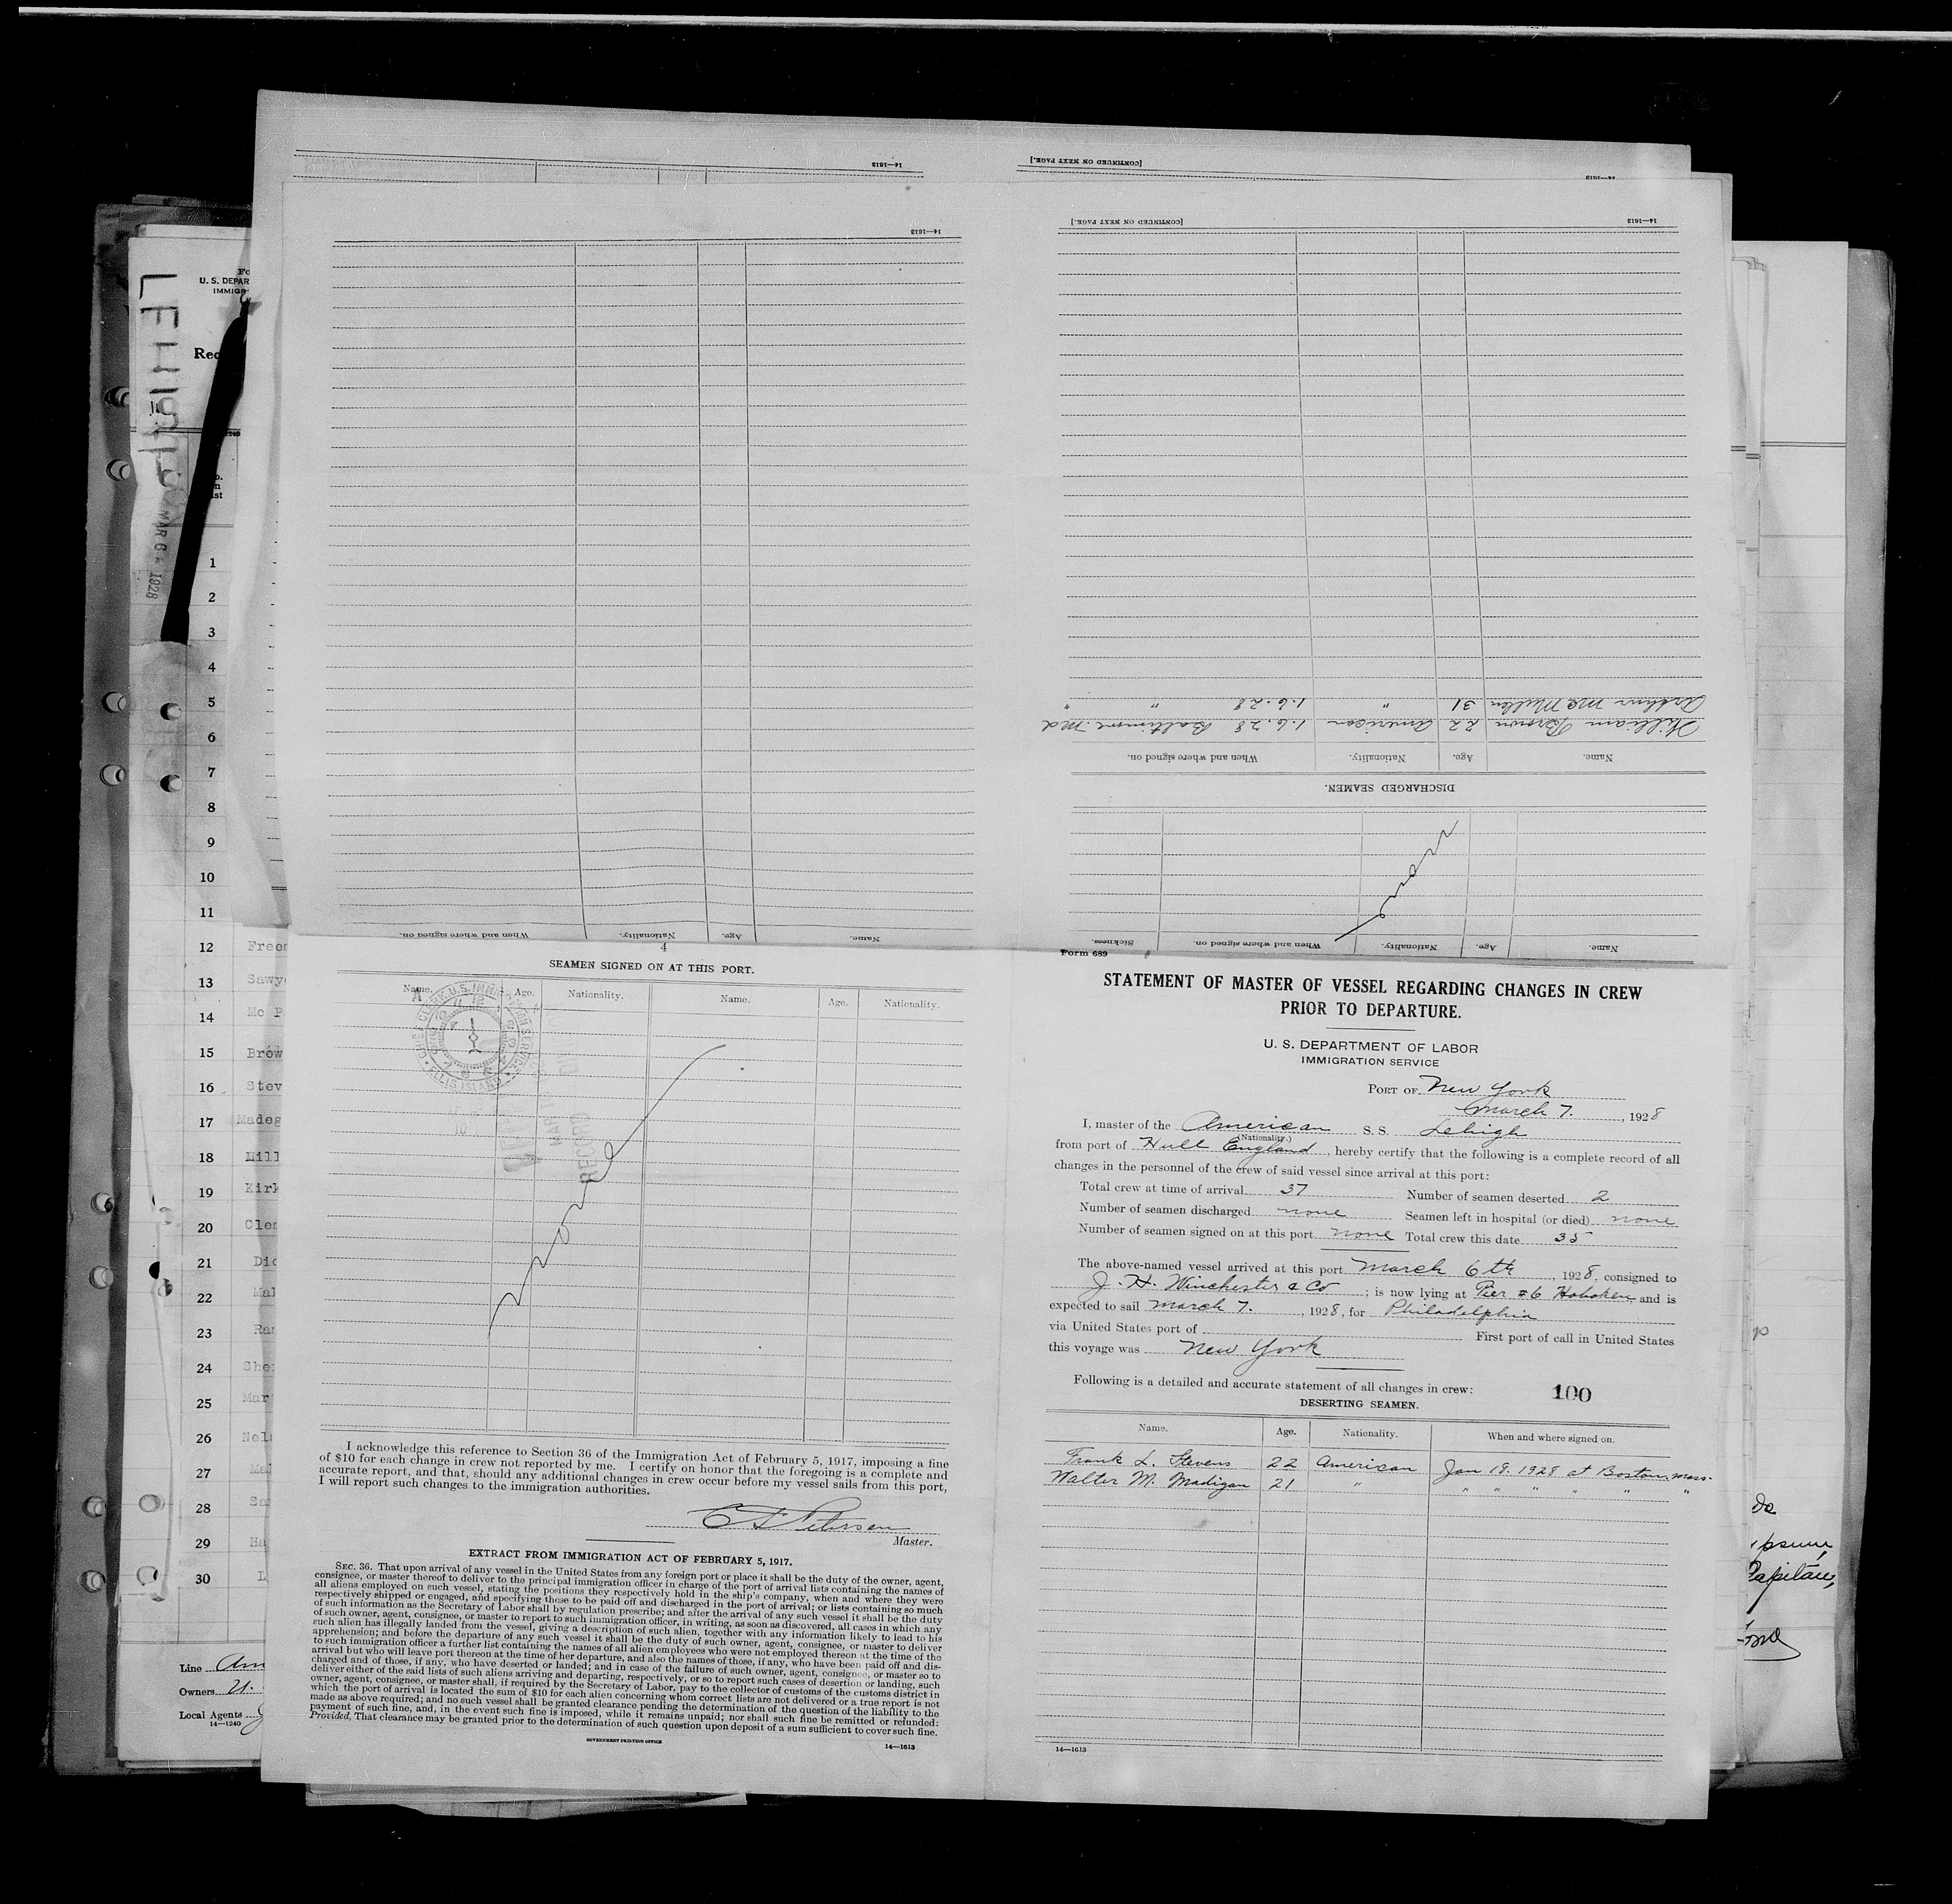 14—1613
[CONTINUED ON NEXT PAGE.]
14—1613
14—1613
[CONTINUED ON NEXT PAGE.]
14—1613
LEHIGH
MAR 6 1928
U. S. DEPAR
IMMIGR
Rec
1
2
3
4
5
6
7
8
9
10
11
12 Free
13 Sawy
14 Mc P
15 Brow
16 Stev
17 Madeg
18 Mill
19 Kirk
20 Clem
21 Dic
22 Mal
23 Ran
24 She
25 Mar
26 Nels
27
28
29 Ha
30 L
Line Am
Owners U.
Local Agents
14—1240
Name. Age. Nationality. When and where signed on.
Name. Age. Nationality. When and where signed on. Sickness.
none
DISCHARGED SEAMEN.
Name. Age. Nationality. When and where signed on.
William Brown 22 American 1-6-28 Baltimore Md
Arthur McMullen 31 " 1-6-28 " "
4
SEAMEN SIGNED ON AT THIS PORT.
Name. Age. Nationality. Name. Age. Nationality.
CHIEF CLERK U.S. IMMIGRATION SERVICE
ELLIS ISLAND
RECORD
none
I acknowledge this reference to Section 36 of the Immigration Act of February 5, 1917, imposing a fine
of $10 for each change in crew not reported by me. I certify on honor that the foregoing is a complete and
accurate report, and that, should any additional changes in crew occur before my vessel sails from this port,
I will report such changes to the immigration authorities.
Master.
EXTRACT FROM IMMIGRATION ACT OF FEBRUARY 5, 1917.
SEC. 36. That upon arrival of any vessel in the United States from any foreign port or place it shall be the duty of the owner, agent,
consignee, or master thereof to deliver to the principal immigration officer in charge of the port of arrival lists containing the names of
all aliens employed on such vessel, stating the positions they respectively hold in the ship's company, when and where they were
respectively shipped or engaged, and specifying those to be paid off and discharged in the port of arrival; or lists containing so much
of such information as the Secretary of Labor shall by regulation prescribe; and after the arrival of any such vessel it shall be the duty
of such owner, agent, consignee, or master to report to such immigration officer, in writing, as soon as discovered, all cases in which any
such alien has illegally landed from the vessel, giving a description of such alien, together with any information likely to lead to his
apprehension; and before the departure of any such vessel it shall be the duty of such owner, agent, consignee, or master to deliver
to such immigration officer a further list containing the names of all alien employees who were not employed thereon at the time of the
arrival but who will leave port thereon at the time of her departure, and also the names of those, if any, who have been paid off and dis-
charged and of those, if any, who have deserted or landed; and in case of the failure of such owner, agent, consignee, or master so to
deliver either of the said lists of such aliens arriving and departing, respectively, or so to report such cases of desertion or landing, such
owner, agent, consignee, or master shall, if required by the Secretary of Labor, pay to the collector of customs of the customs district in
which the port of arrival is located the sum of $10 for each alien concerning whom correct lists are not delivered or a true report is not
made as above required; and no such vessel shall be granted clearance pending the determination of the question of the liability to the
payment of such fine, and, in the event such fine is imposed, while it remains unpaid; nor shall such fine be remitted or refunded:
Provided, That clearance may be granted prior to the determination of such question upon deposit of a sum sufficient to cover such fine.
GOVERNMENT PRINTING OFFICE
14—1613
Form 689
STATEMENT OF MASTER OF VESSEL REGARDING CHANGES IN CREW
PRIOR TO DEPARTURE.
U. S. DEPARTMENT OF LABOR
IMMIGRATION SERVICE
PORT OF New York
March 7. , 1928
I, master of the American S. S. Lehigh
(Nationality.)
from port of Hull England, hereby certify that the following is a complete record of all
changes in the personnel of the crew of said vessel since arrival at this port:
Total crew at time of arrival 37 Number of seamen deserted 2
Number of seamen discharged none Seamen left in hospital (or died) none
Number of seamen signed on at this port none Total crew this date 35
The above-named vessel arrived at this port March 6th, 1928, consigned to
J. H. Winchester & Co; is now lying at Pier #6 Hoboken and is
expected to sail March 7., 1928, for Philadelphia
via United States port of First port of call in United States
this voyage was New York
Following is a detailed and accurate statement of all changes in crew:
100
DESERTING SEAMEN.
Name. Age. Nationality. When and where signed on.
Frank L. Stevens 22 American Jan 18. 1928 at Boston, Mass.
Walter M. Madigan 21 " " " " " " "
14—1613